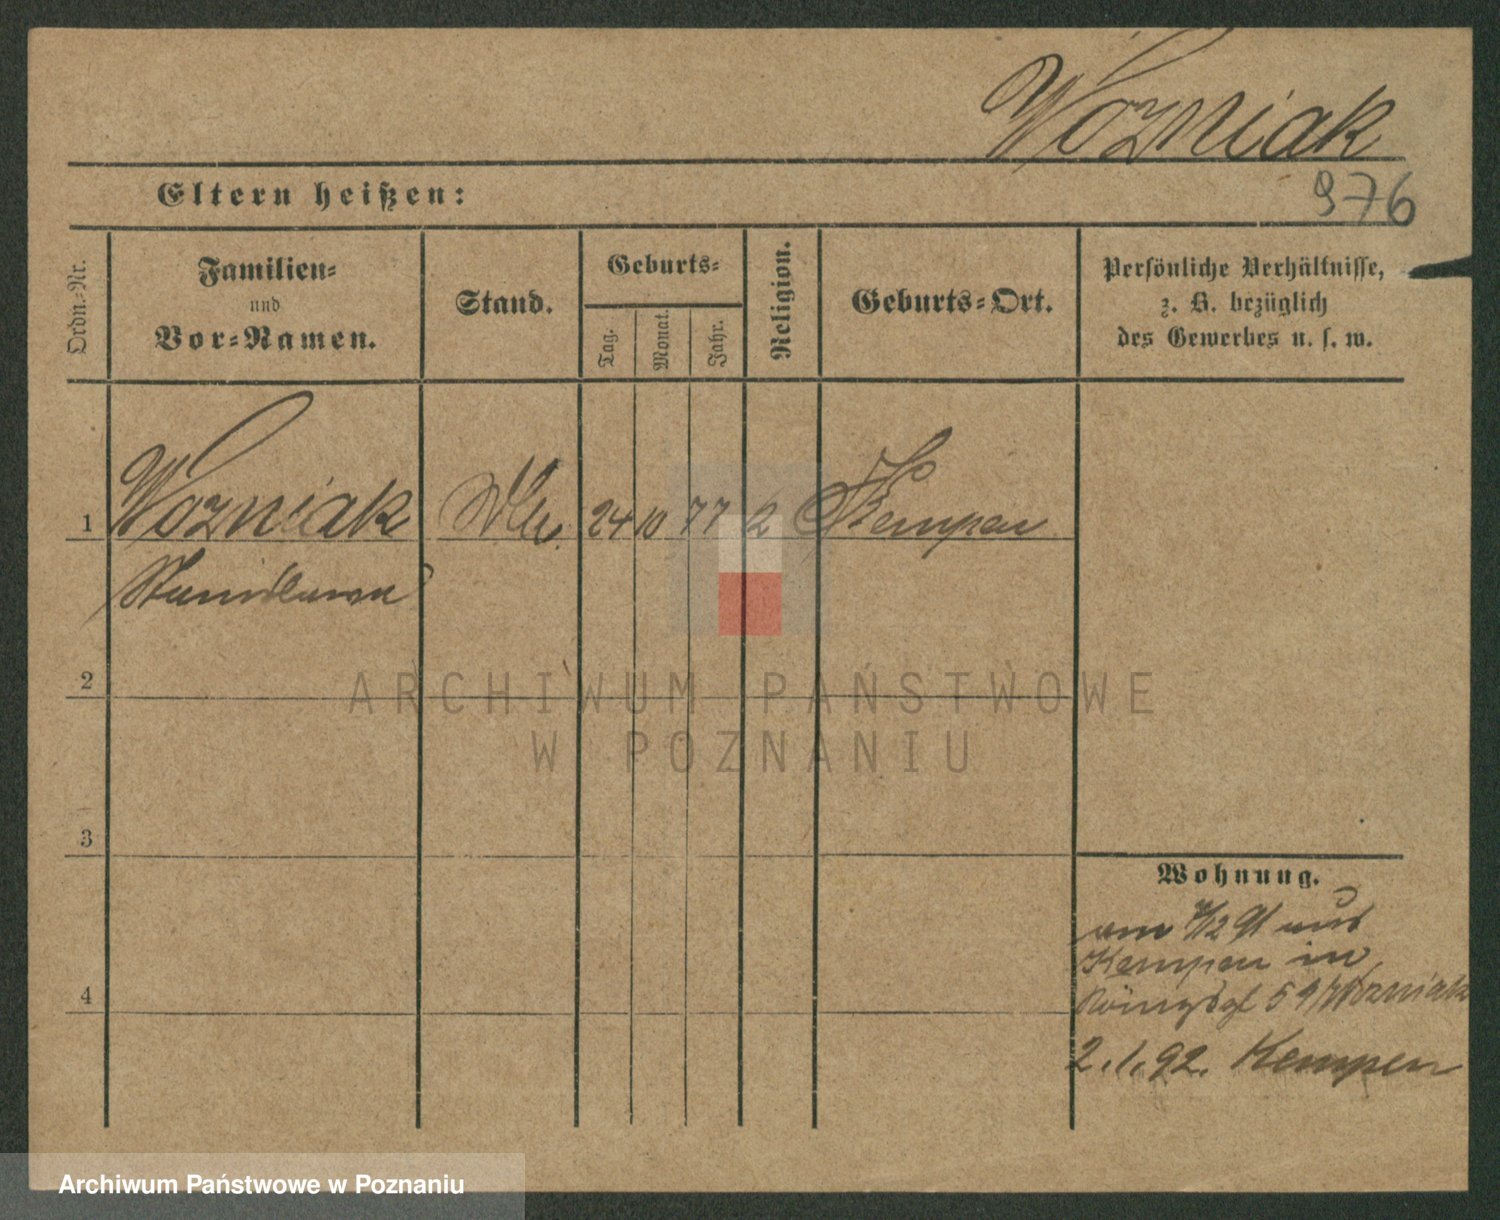 Wozniak
976
Eltern heißen:
Ordn.-Nr.
Familien-
und
Vor-Namen.
Stand.
Geburts-
Tag.
Monat.
Jahr.
Religion.
Geburts-Ort.
Persönliche Verhältnisse,
z. B. bezüglich
des Gewerbes u. s. w.
1 Wozniak 24 10 77 2 Kempen
Stanislawa
2
ARCHIWUM PAŃSTWOWE
W POZNANIU
3
Wohnung.
am 4/12 91 aus
Kempen in
4
Königspl 5 9/ Wozniak
2.1.92. Kempen
Archiwum Państwowe w Poznaniu